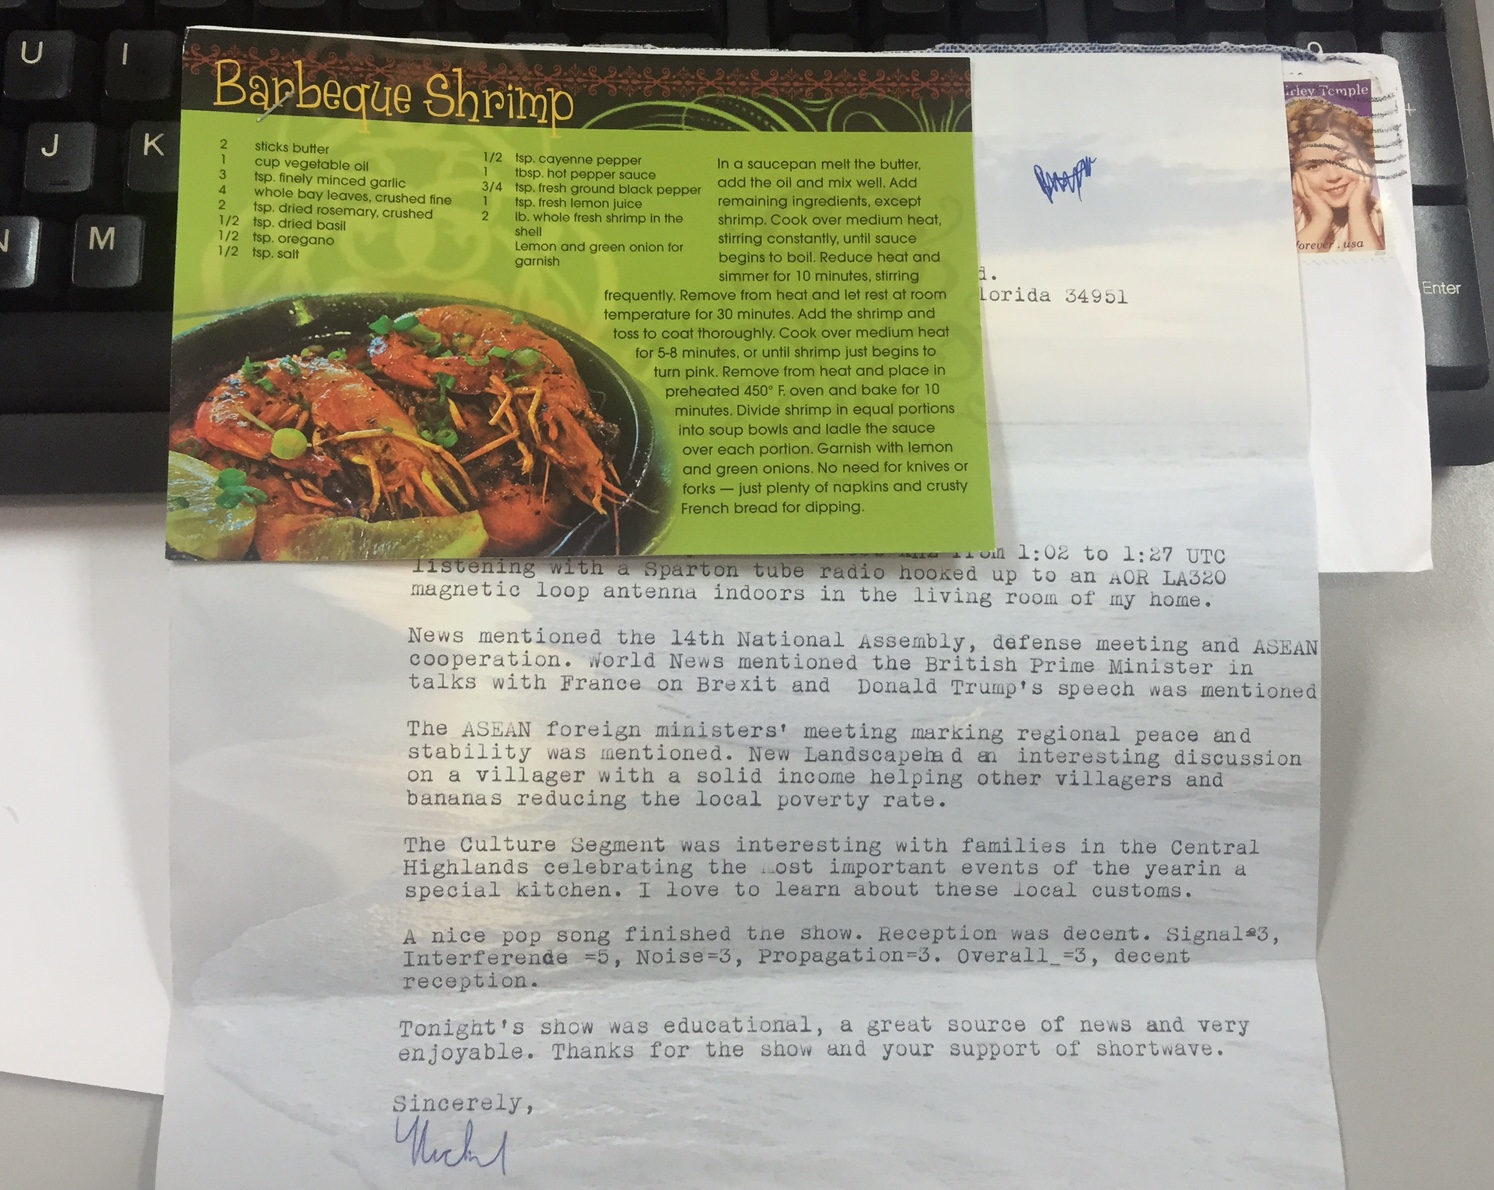 U
I
J
K
N
M
9
+
Enter
Barbeque Shrimp
2 sticks butter
1 cup vegetable oil
3 tsp. finely minced garlic
4 whole bay leaves, crushed fine
2 tsp. dried rosemary, crushed
1/2 tsp. dried basil
1/2 tsp. oregano
1/2 tsp. salt
1/2 tsp. cayenne pepper
1 tbsp. hot pepper sauce
3/4 tsp. fresh ground black pepper
1 tsp. fresh lemon juice
2 lb. whole fresh shrimp in the
shell
Lemon and green onion for
garnish
In a saucepan melt the butter,
add the oil and mix well. Add
remaining ingredients, except
shrimp. Cook over medium heat,
stirring constantly, until sauce
begins to boil. Reduce heat and
simmer for 10 minutes, stirring
frequently. Remove from heat and let rest at room
temperature for 30 minutes. Add the shrimp and
toss to coat thoroughly. Cook over medium heat
for 5-8 minutes, or until shrimp just begins to
turn pink. Remove from heat and place in
preheated 450° F. oven and bake for 10
minutes. Divide shrimp in equal portions
into soup bowls and ladle the sauce
over each portion. Garnish with lemon
and green onions. No need for knives or
forks — just plenty of napkins and crusty
French bread for dipping.
irley Temple
forever . usa
d.
lorida 34951
from 1:02 to 1:27 UTC
listening with a Sparton tube radio hooked up to an AOR LA320
magnetic loop antenna indoors in the living room of my home.
News mentioned the 14th National Assembly, defense meeting and ASEAN
cooperation. World News mentioned the British Prime Minister in
talks with France on Brexit and Donald Trump's speech was mentioned
The ASEAN foreign ministers' meeting marking regional peace and
stability was mentioned. New Landscapehad an interesting discussion
on a villager with a solid income helping other villagers and
bananas reducing the local poverty rate.
The Culture Segment was interesting with families in the Central
Highlands celebrating the most important events of the yearin a
special kitchen. I love to learn about these local customs.
A nice pop song finished the show. Reception was decent. Signal=3,
Interferende =5, Noise=3, Propagation=3. Overall_=3, decent
reception.
Tonight's show was educational, a great source of news and very
enjoyable. Thanks for the show and your support of shortwave.
Sincerely,